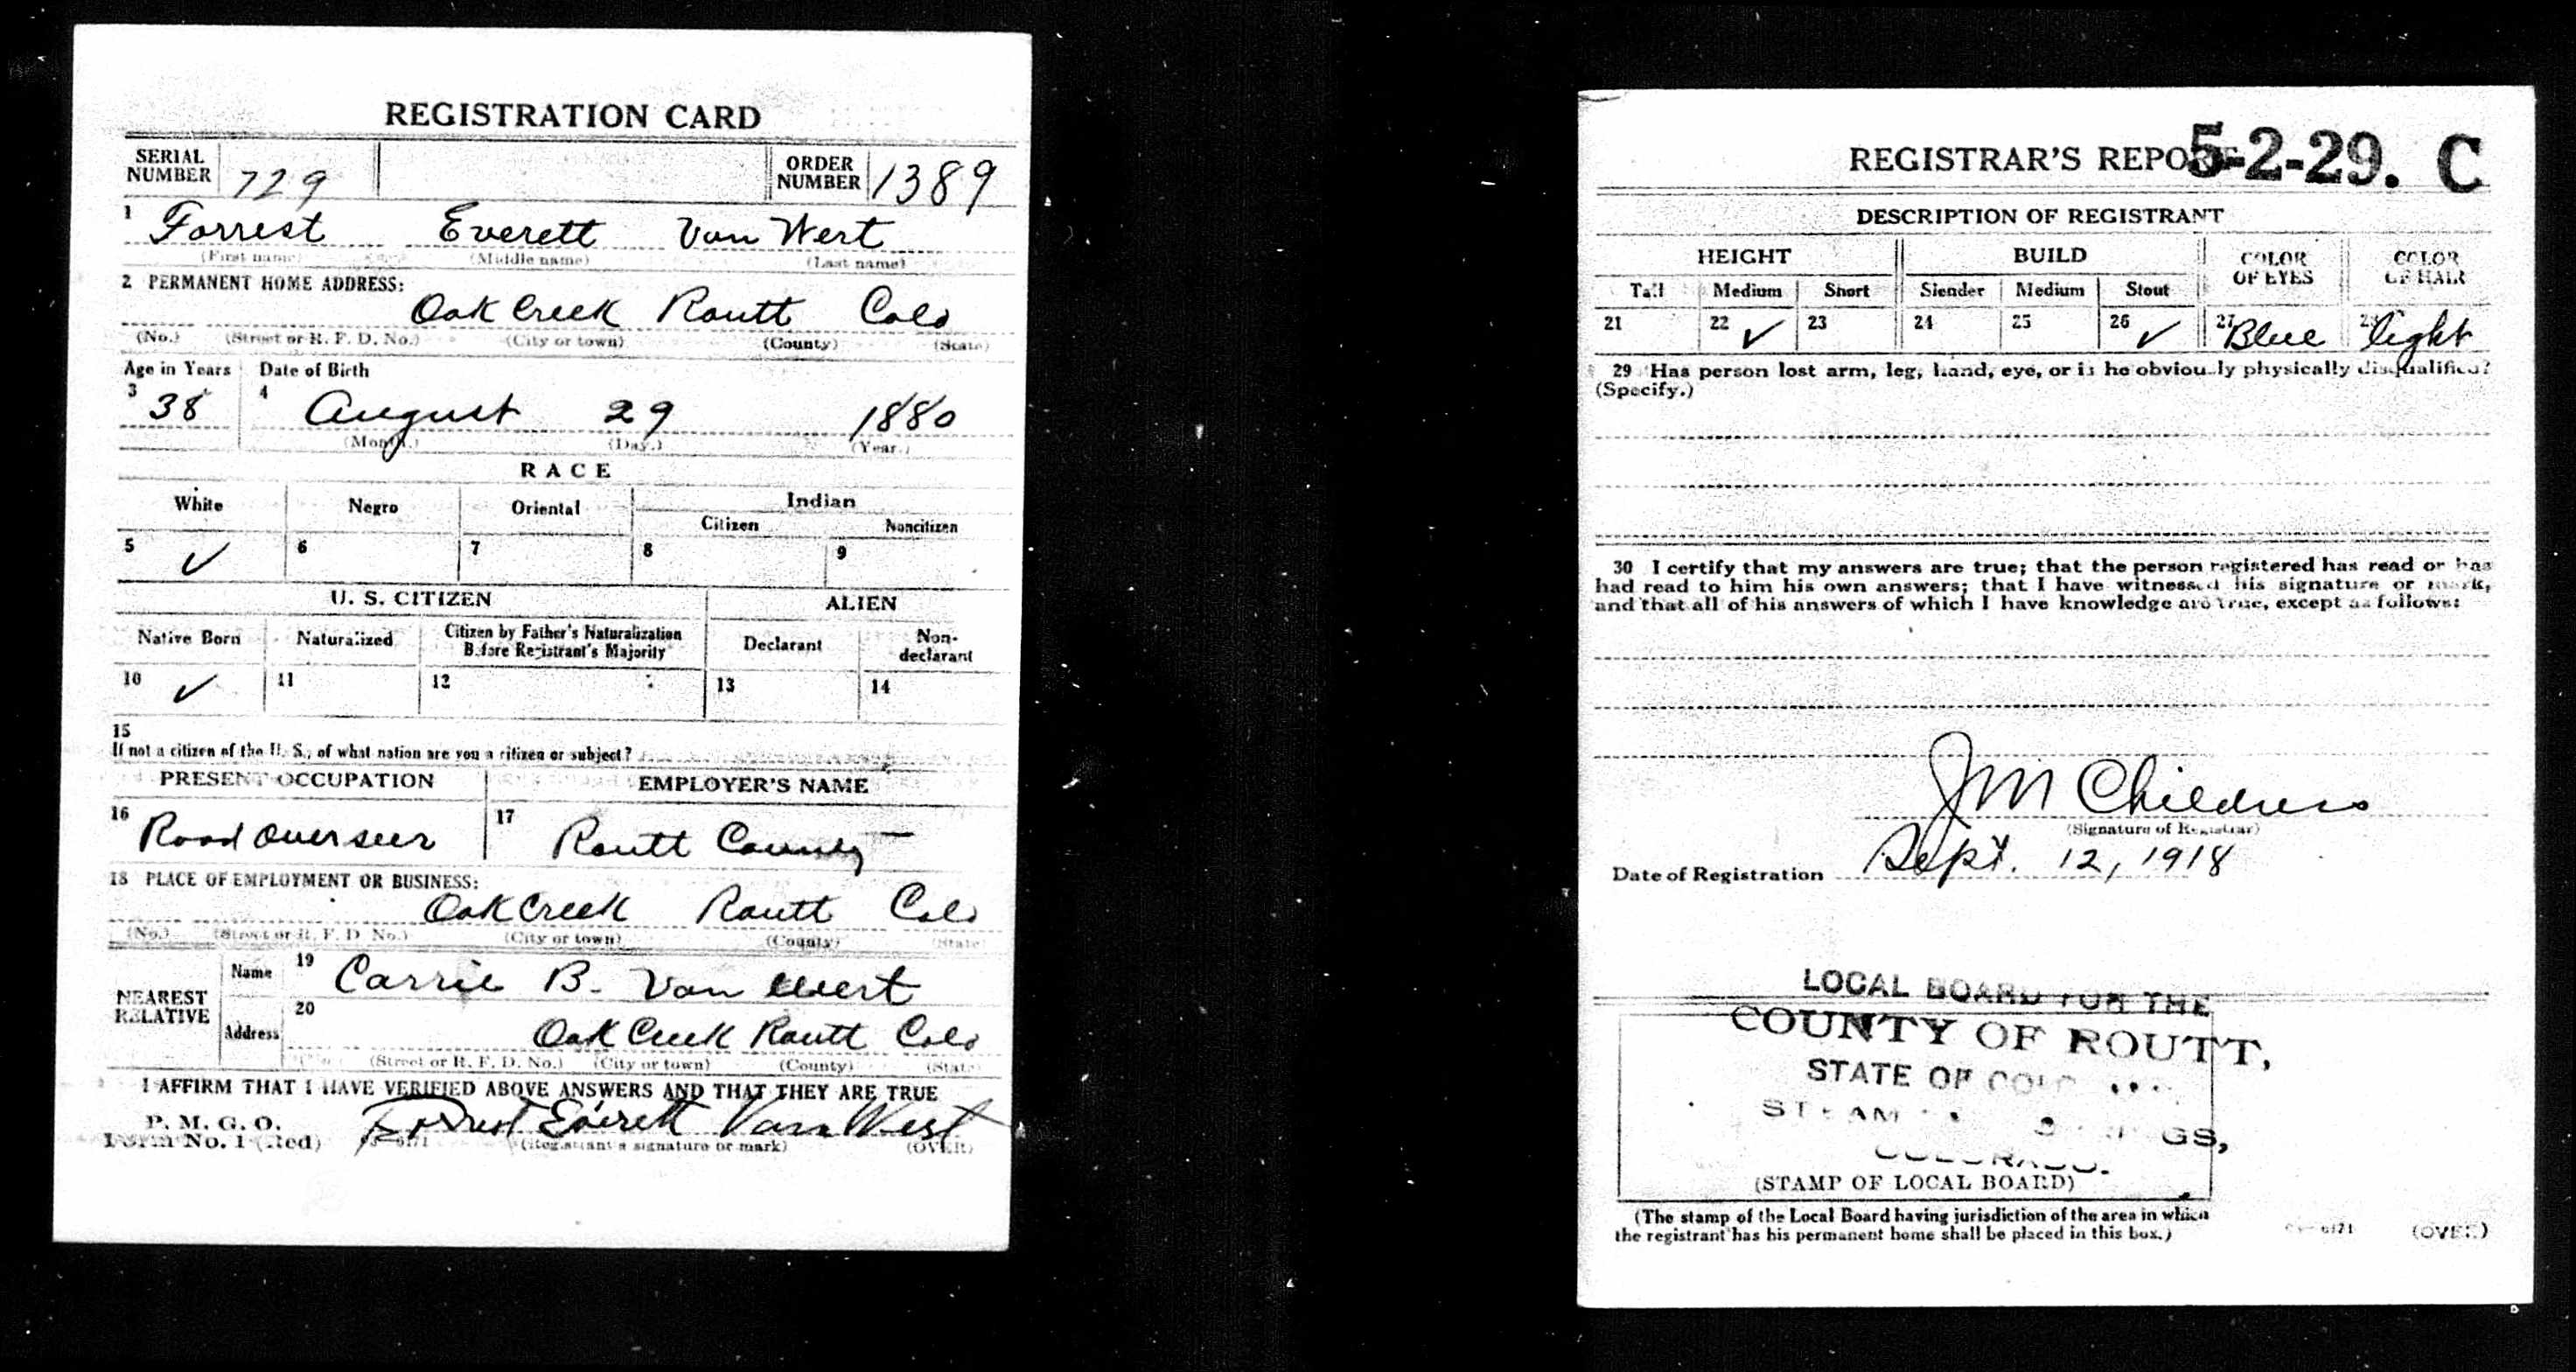 REGISTRATION CARD
SERIAL NUMBER 729 ORDER NUMBER 1389
1 Forrest Everett Van Wert
(First name) (Middle name) (Last name)
2 PERMANENT HOME ADDRESS:
Oak Creek Routt Colo
(No.) (Street or R. F. D. No.) (City or town) (County) (State)
Age in Years Date of Birth
3 38 4 August 29 1880
(Month.) (Day.) (Year.)
RACE
White Negro Oriental Indian
Citizen Noncitizen
5 ✓ 6 7 8 9
U. S. CITIZEN ALIEN
Native Born Naturalized Citizen by Father's Naturalization Before Registrant's Majority Declarant Non-declarant
10 ✓ 11 12 13 14
15
If not a citizen of the U. S., of what nation are you a citizen or subject?
PRESENT OCCUPATION EMPLOYER'S NAME
16 Road overseer 17 Routt County
18 PLACE OF EMPLOYMENT OR BUSINESS:
Oak Creek Routt Colo
(No.) (Street or R. F. D. No.) (City or town) (County) (State)
NEAREST RELATIVE
Name 19 Carrie B. Van Wert
Address 20 Oak Creek Routt Colo
(Street or R. F. D. No.) (City or town) (County) (State)
I AFFIRM THAT I HAVE VERIFIED ABOVE ANSWERS AND THAT THEY ARE TRUE
P. M. G. O.
Form No. 1 (Red) Forrest Everett Van Wert
(Registrant's signature or mark) (OVER)
REGISTRAR'S REPORT 5-2-29. C
DESCRIPTION OF REGISTRANT
HEIGHT BUILD COLOR OF EYES COLOR OF HAIR
Tall Medium Short Slender Medium Stout
21 22 ✓ 23 24 25 26 ✓ 27 Blue 28 light
29 Has person lost arm, leg, hand, eye, or is he obviously physically disqualified?
(Specify.)
30 I certify that my answers are true; that the person registered has read or has
had read to him his own answers; that I have witnessed his signature or mark,
and that all of his answers of which I have knowledge are true, except as follows:
J M Childress
(Signature of Registrar)
Date of Registration Sept. 12, 1918
LOCAL BOARD FOR THE
COUNTY OF ROUTT,
STATE OF COLO
STEAM SPRINGS,
COLORADO.
(STAMP OF LOCAL BOARD)
(The stamp of the Local Board having jurisdiction of the area in which
the registrant has his permanent home shall be placed in this box.)
(OVER)